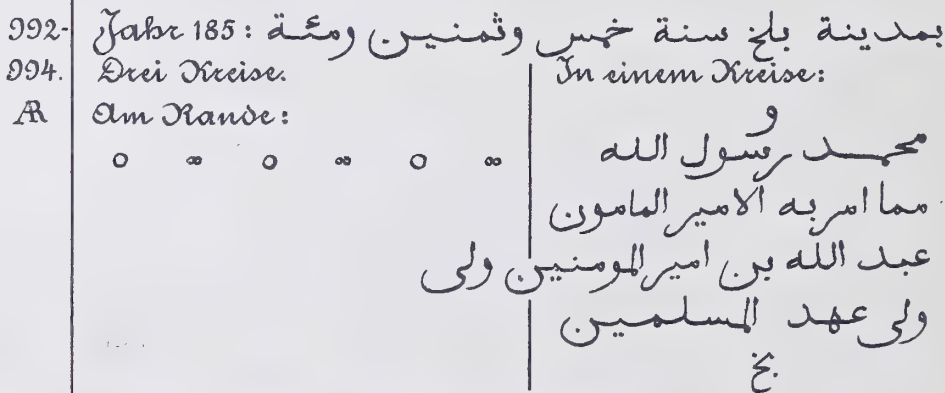 992- Jahr 185: بمدينة بلخ سنة خمس وثمنين ومئة
994. Drei Kreise.
In einem Kreise:
AR Am Rande:
o ∞ o ∞ o ∞
و
محمد رسول الله
مما امر به الامير المامون
عبد الله بن امير المومنين ولى
ولى عهد المسلمين
بخ